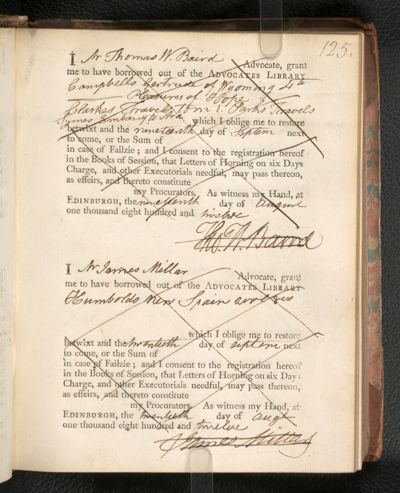 125.
I Mr Thomas W. Baird Advocate, grant
me to have borrowed out of the ADVOCATES LIBRARY
Campbells Gertrude of Wyoming 4to
Pleasures of Hope
Clarkes Travels Vol 1. Parks Travels
Symes Embassy to Ava which I oblige me to restore
betwixt and the nineteenth day of Septem next
to come, or the Sum of
in case of Failzie; and I consent to the registration hereof
in the Books of Session, that Letters of Horning on six Days
Charge, and other Executorials needful, may pass thereon,
as effeirs, and thereto constitute
my Procurators. As witness my Hand, at
EDINBURGH, the nineteenth day of August
one thousand eight hundred and twelve
Th. W. Baird
I Mr James Millar Advocate, grant
me to have borrowed out of the ADVOCATES LIBRARY
Humbolds New Spain
which I oblige me to restore
betwixt and the twentieth day of Septem next
to come, or the Sum of
in case of Failzie; and I consent to the registration hereof
in the Books of Session, that Letters of Horning on six Days
Charge, and other Executorials needful, may pass thereon,
as effeirs, and thereto constitute
my Procurators. As witness my Hand, at
EDINBURGH, the twentieth day of Augt
one thousand eight hundred and twelve
James Millar